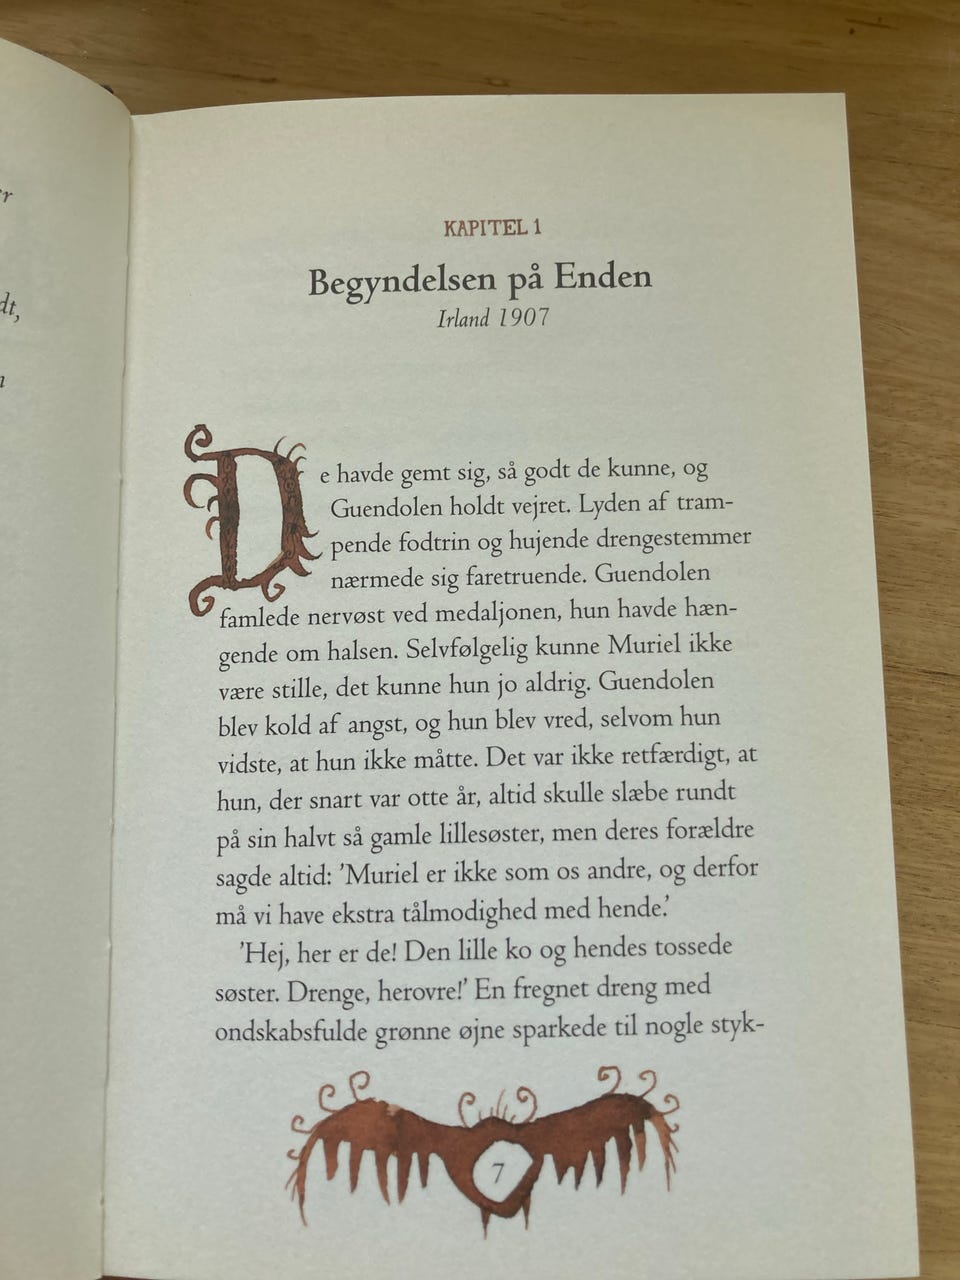 r
dt,
KAPITEL 1
Begyndelsen på Enden
Irland 1907
De havde gemt sig, så godt de kunne, og
Guendolen holdt vejret. Lyden af tram-
pende fodtrin og hujende drengestemmer
nærmede sig faretruende. Guendolen
famlede nervøst ved medaljonen, hun havde hæn-
gende om halsen. Selvfølgelig kunne Muriel ikke
være stille, det kunne hun jo aldrig. Guendolen
blev kold af angst, og hun blev vred, selvom hun
vidste, at hun ikke måtte. Det var ikke retfærdigt, at
hun, der snart var otte år, altid skulle slæbe rundt
på sin halvt så gamle lillesøster, men deres forældre
sagde altid: ’Muriel er ikke som os andre, og derfor
må vi have ekstra tålmodighed med hende.’
’Hej, her er de! Den lille ko og hendes tossede
søster. Drenge, herovre!’ En fregnet dreng med
ondskabsfulde grønne øjne sparkede til nogle styk-
7